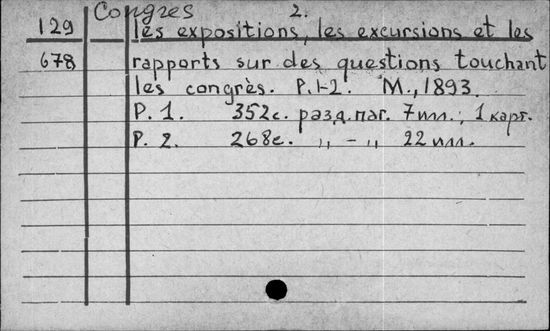 Congres 2.
129 les expositions, les excursions et les
678 rapports sur des questions touchant
les congrès. P.1-2. M., 1893.
P. 1. 352с. разд. паг. 7илл.; 1 карт.
P. 2. 268с. „ – „ 22илл.